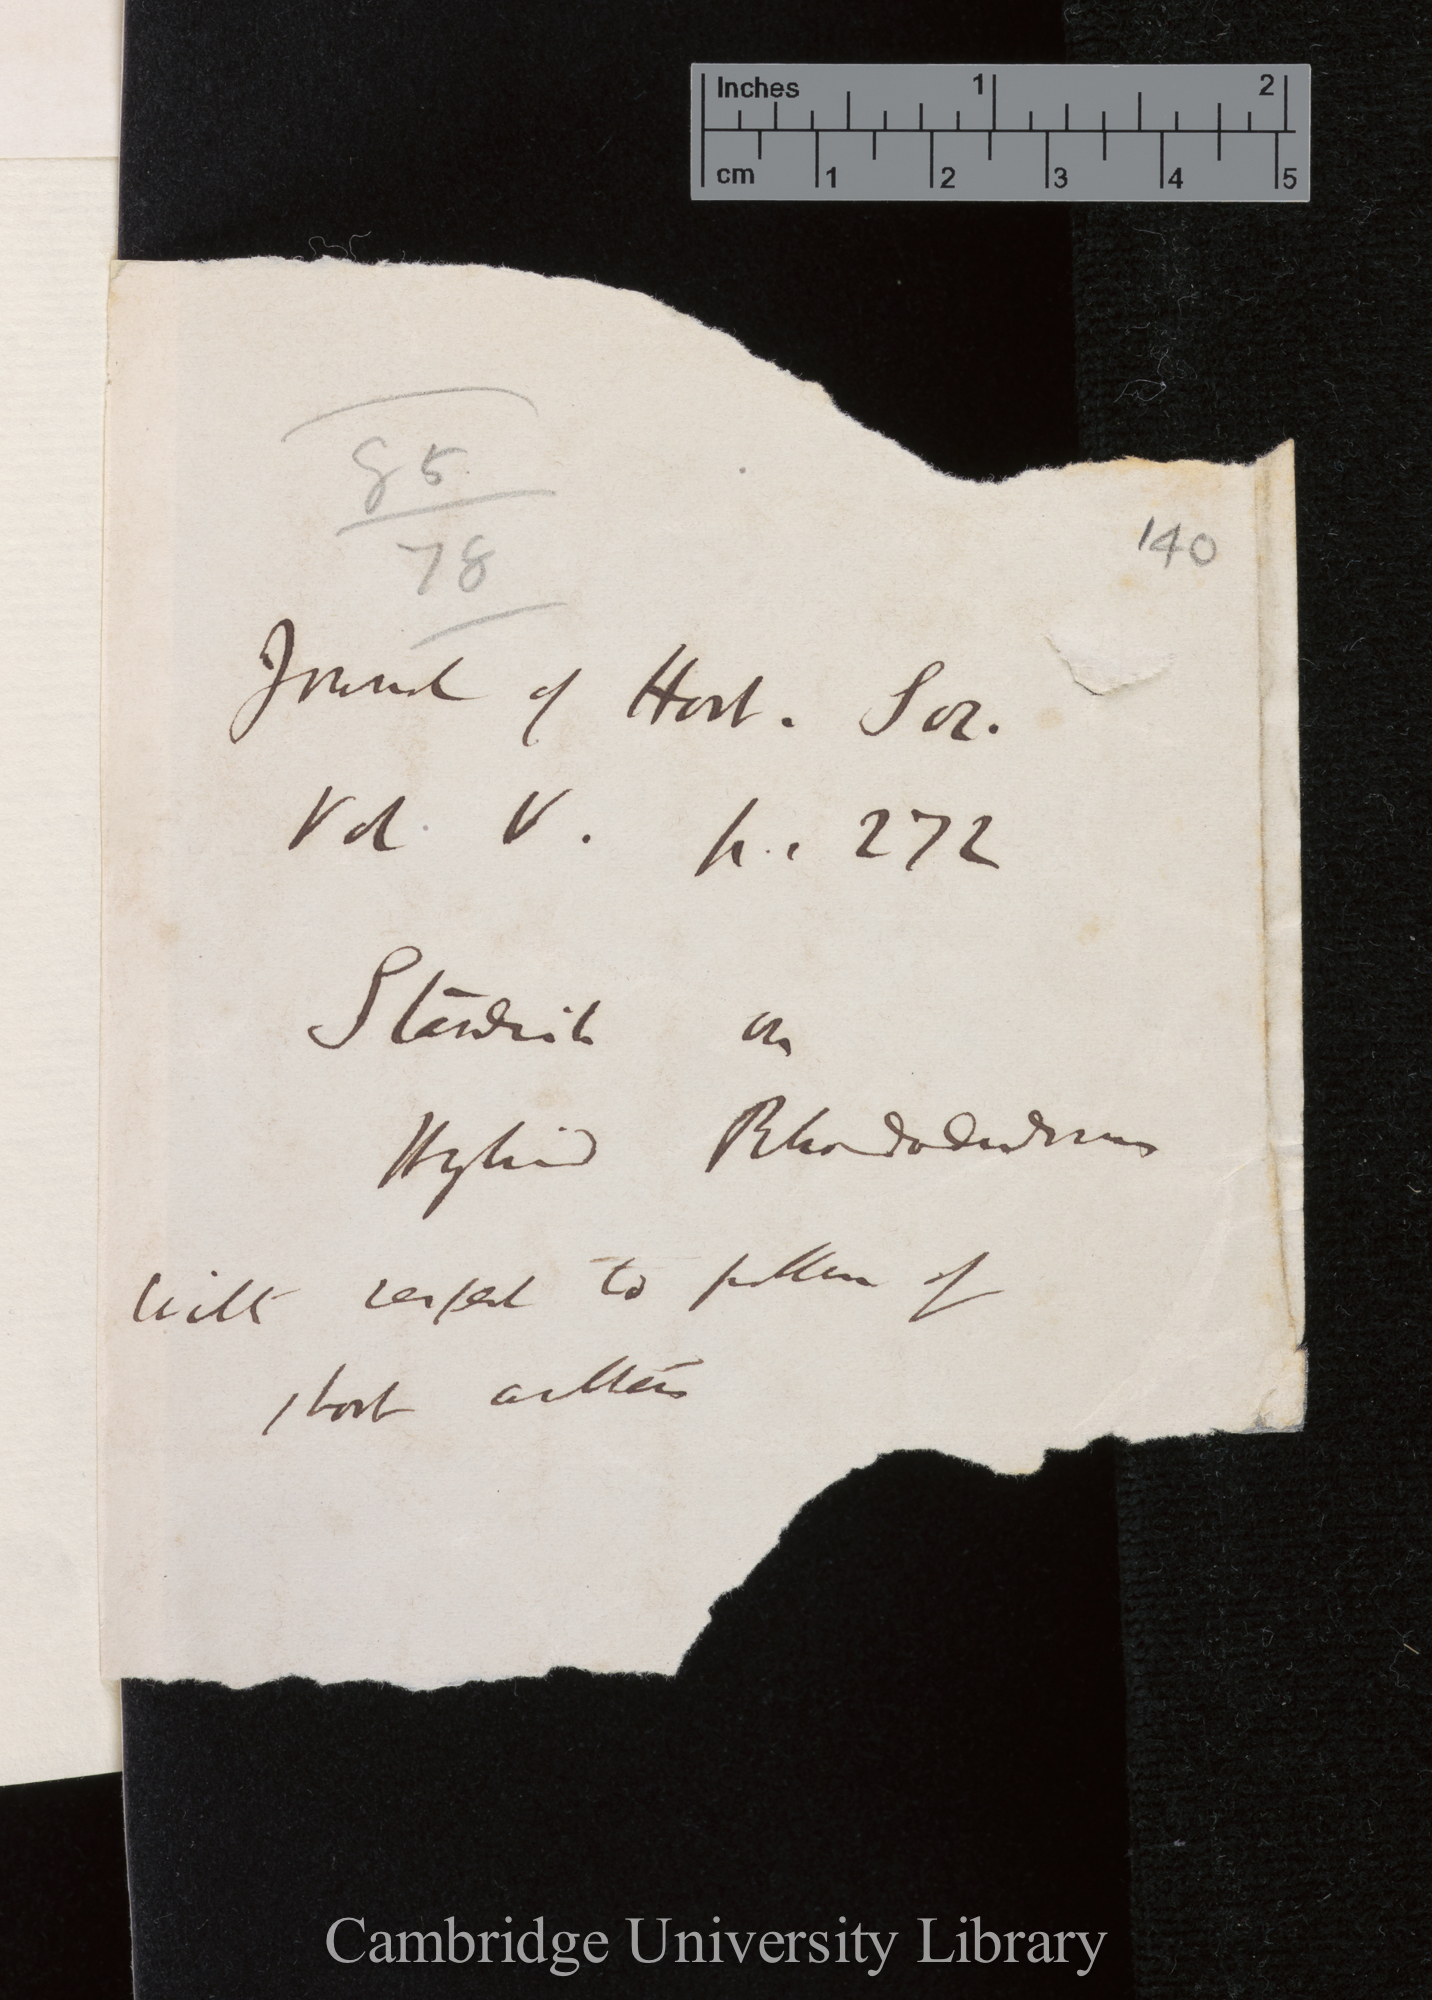 Inches 1 2
cm 1 2 3 4 5
85
78
140
Journal of Hort. Soc.
Vol. V. p. 272
Standish on
Hybrid Rhododendrons
with respect to pollen of
short anthers
Cambridge University Library